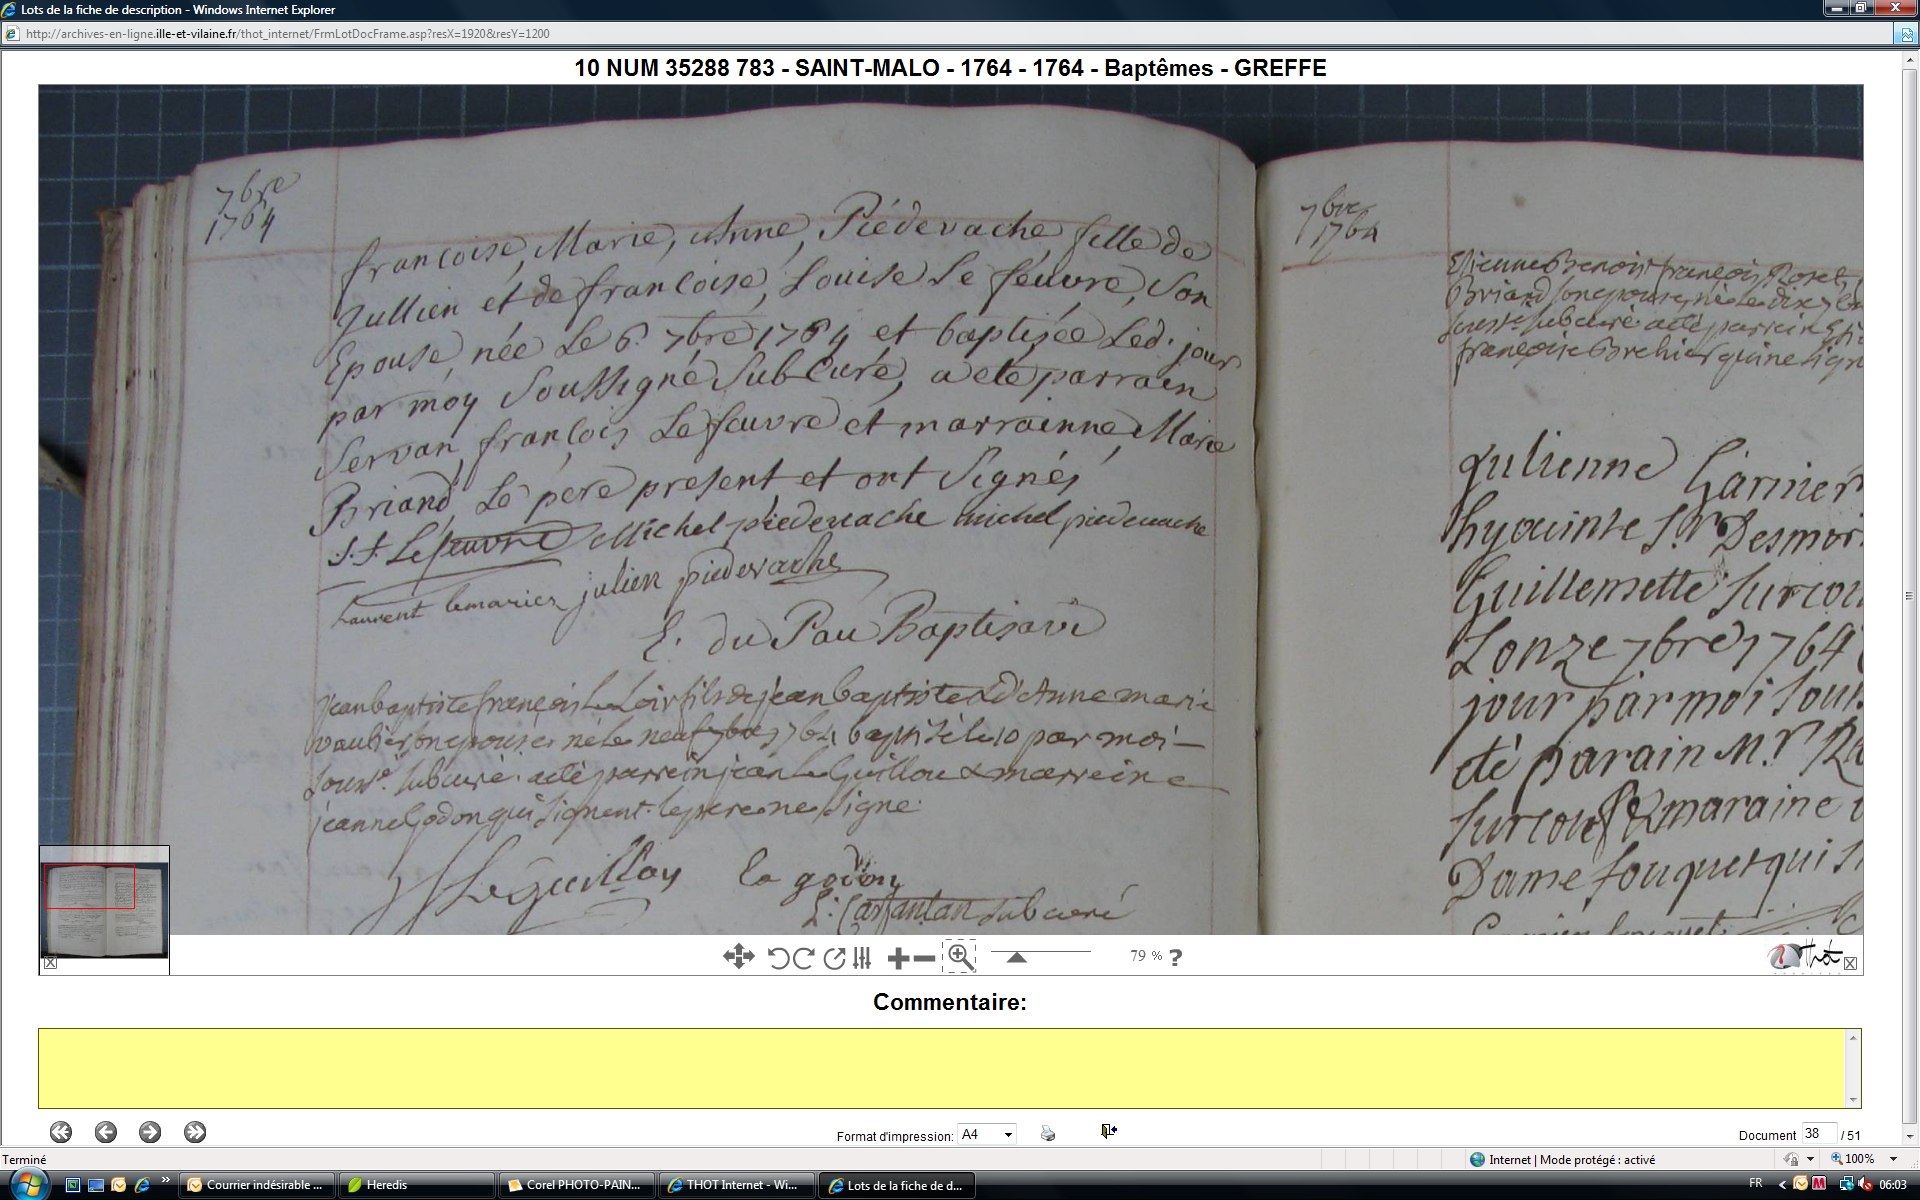 Lots de la fiche de description - Windows Internet Explorer
http://archives-en-ligne.ille-et-vilaine.fr/thot_internet/FrmLotDocFrame.asp?resX=1920&resY=1200
10 NUM 35288 783 - SAINT-MALO - 1764 - 1764 - Baptêmes - GREFFE
7bre
1764
françoise, Marie, Anne, Piédevache, fille de
Jullien et de françoise, Louise Le feuvre, Son
Epouse, née Le 6. 7bre 1764 et baptisée Led. jour
par moy Soussigné SubCuré, a eté parrain
Servan, françois Lefeuvre et marrainne Marie
Briand, Le pere present et ont Signés
S. f. Lefeuvre Michel piedevache michel piedevache
Laurent lemarier julien piedevache
E. du Pau Baptisavi
jean baptiste françois Le Loir fils de jean baptiste & d'Anne marie
son epouse né le neuf 7bre 1764 baptisé le 10 par moi
sousé. subcuré. a eté parrein jean Le Guillou & marreine
jeanne Godon qui signent. le pere ne signe
Le Guillou La godon
subcuré
7bre
1764
Etienne Benoist françois
Briand son epouse, né le dix 7bre
subcuré a eté parrein
françoise qui ne sign
Julienne Garnier
hyacinte Sr. Desmor
Guillemette Surcou
L'onze 7bre 1764
jour par moi sous
été parain Mr.
Surcouf & maraine
Dame fouquet qui si
Thot
79 % ?
Commentaire:
Format d'impression: A4
Document 38 / 51
Terminé
Internet | Mode protégé : activé
100%
Courrier indésirable ...
Heredis
Corel PHOTO-PAIN...
THOT Internet - Wi...
Lots de la fiche de d...
FR
06:03